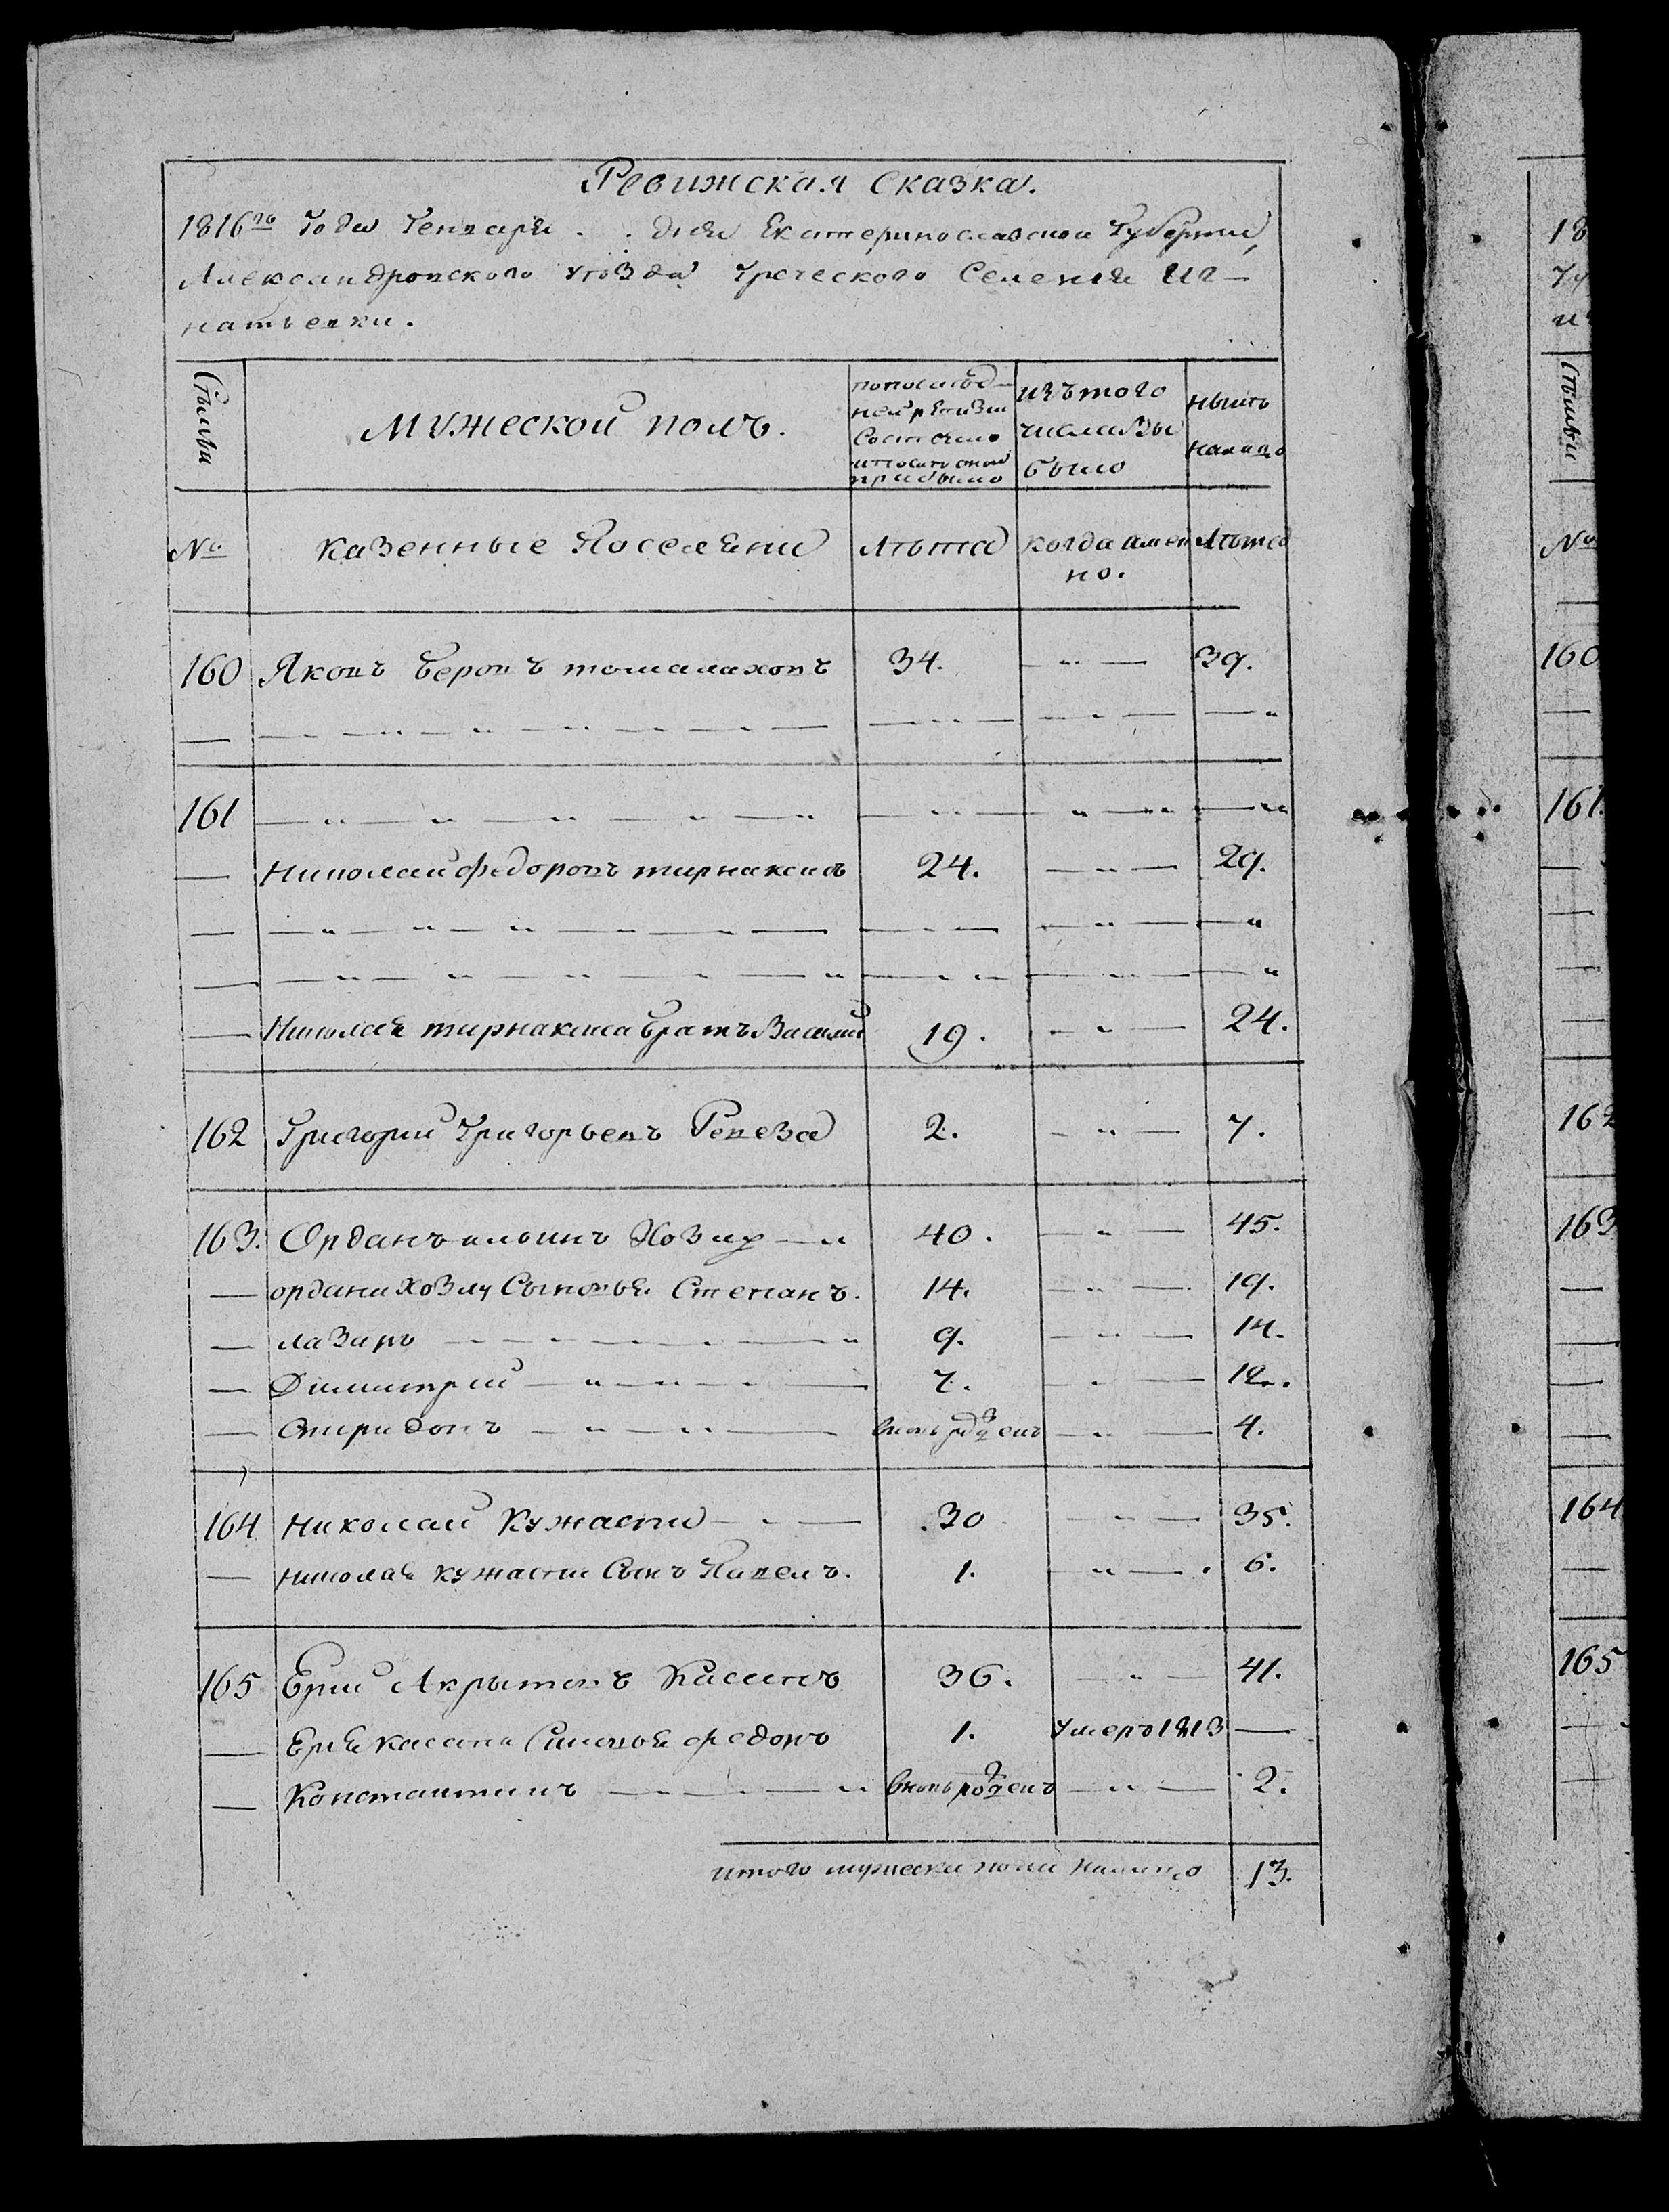 Ревижская Сказка.
1816го Года Генваря . . дня Екатеринославской Губернии,
Александровского уѣзда Греческого Селения Иг-
натьевки.
Семьи
мужеской полъ.
по последней ревизии состояло и после оной прибыло
изъ того числа выбыло
нынѣ налицо
№ казенные Поселяни Лѣта когда имен но. Лѣта
160 Яковъ Беровъ 34. — „ — 39.
161 — „ — „ — „ —
— Николай Федоровъ тирнаксизъ 24. — „ — 29.
— Николая тирнаксиса братъ Василий 19. — „ — 24.
162 Григорий Григорьевъ 2. — „ — 7.
163. Орданъ ильинъ Хозлу — „ 40. — „ — 45.
— ордана Хозлу Сыновья Степанъ. 14. — „ — 19.
— лазарь — „ — 9. — „ — 14.
— Димитрий — „ — 7. — „ — 12.
— Спиридонъ — „ — вновь рожденъ — „ — 4.
164 Николай Кужасти — „ — 30 — „ — 35.
— николая кужасти Сынъ Павелъ. 1. — „ — 6.
165 Ерий 36. — „ — 41.
— Ерия Сыновья федоръ 1. умеръ 1813 —
— Константинъ — „ — вновь рожденъ — „ — 2.
итого мужеска пола налицо 13.
18
№
160
161.
162
163
164
165